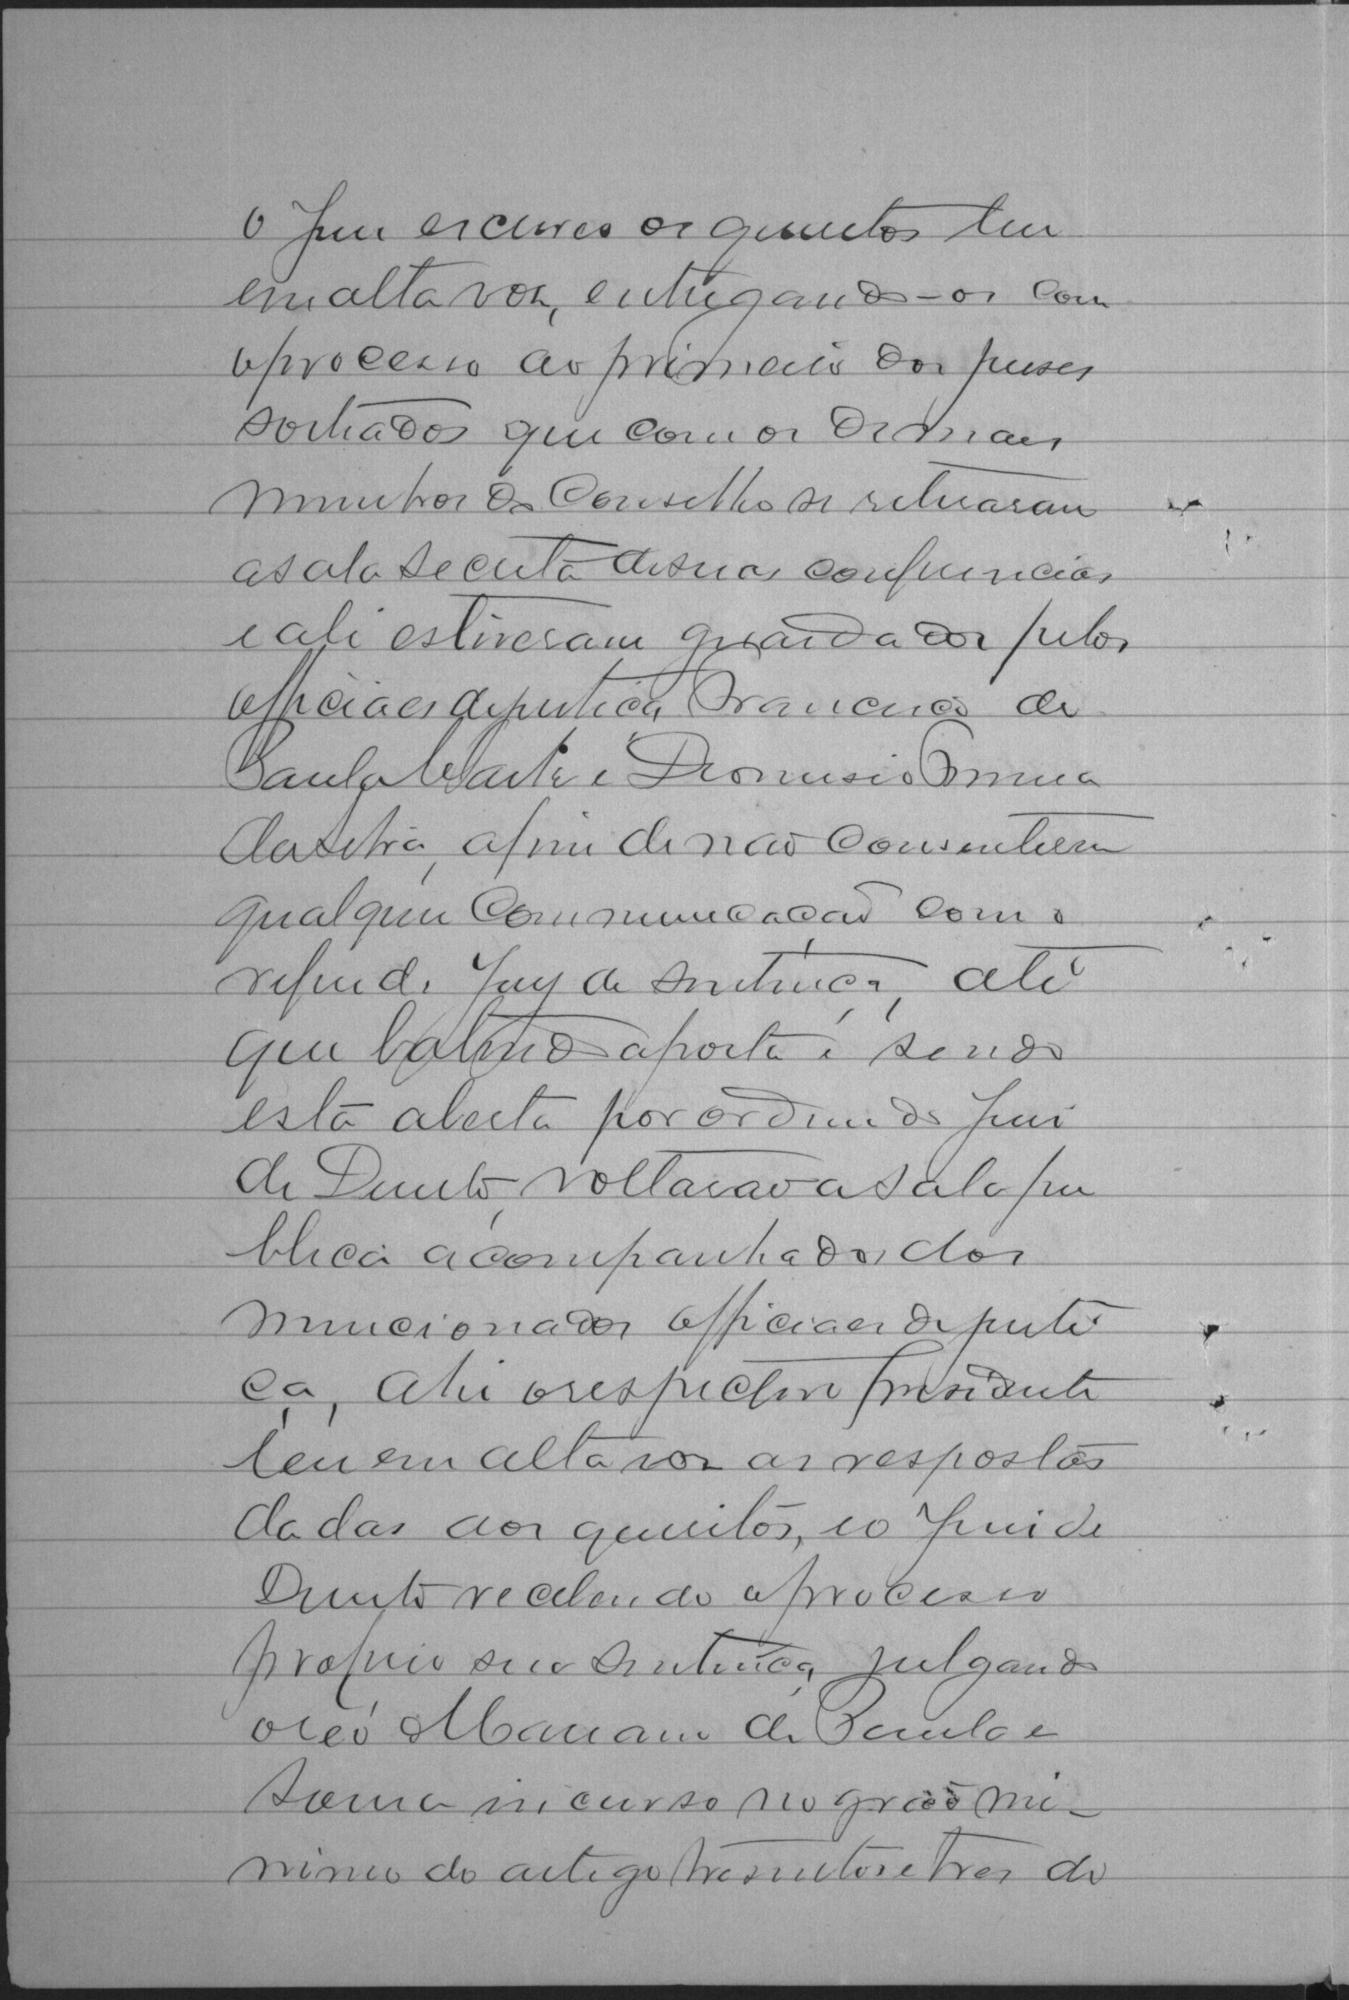 o Juiz escreveo os quesitos leu
em alta voz, entregando-os com
o processo ao primeiro dos juises
sorteados que com os demais
membros do Conselho se retiraram
a sala secreta de suas conferencias
e ali estiveram guardados pelos
officiaes de justiça Francisco de
Paula e Dionisio
da Silva, afim de não consentirem
qualquer communicação com o
referido Jury de sentença, até
que batendo a porta e sendo
esta aberta por ordem do Juiz
de Direito, voltarão a sala pu
blica acompanhados dos
mencionados officiaes de justi
ça, ahi o respectivo presidente
leu em alta voz as respostas
dadas aos quesitos, e o Juiz de
Direito recebendo o processo
proferio sua sentença julgando
o reo Mariano de Paula e
Sousa incurso no gráo mi-
nimo do artigo tresentos e tres do